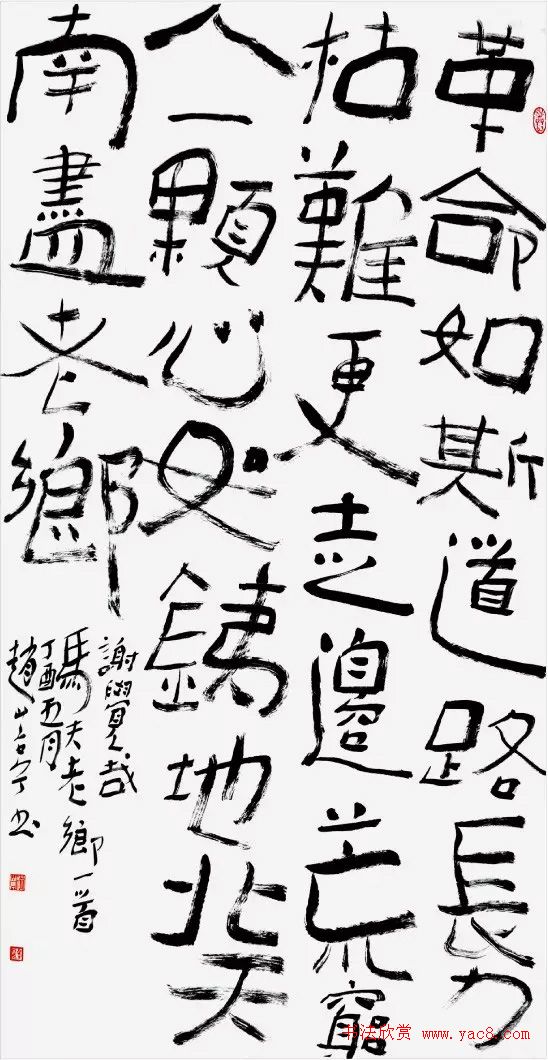 革命如斯道路長力
枯難更走邊荒窮
人一顆心如銕地北天
南盡老鄉
謝覺哉
馬夫老鄉一首
丁酉五月
趙 书
书法欣赏 www.yac8.com